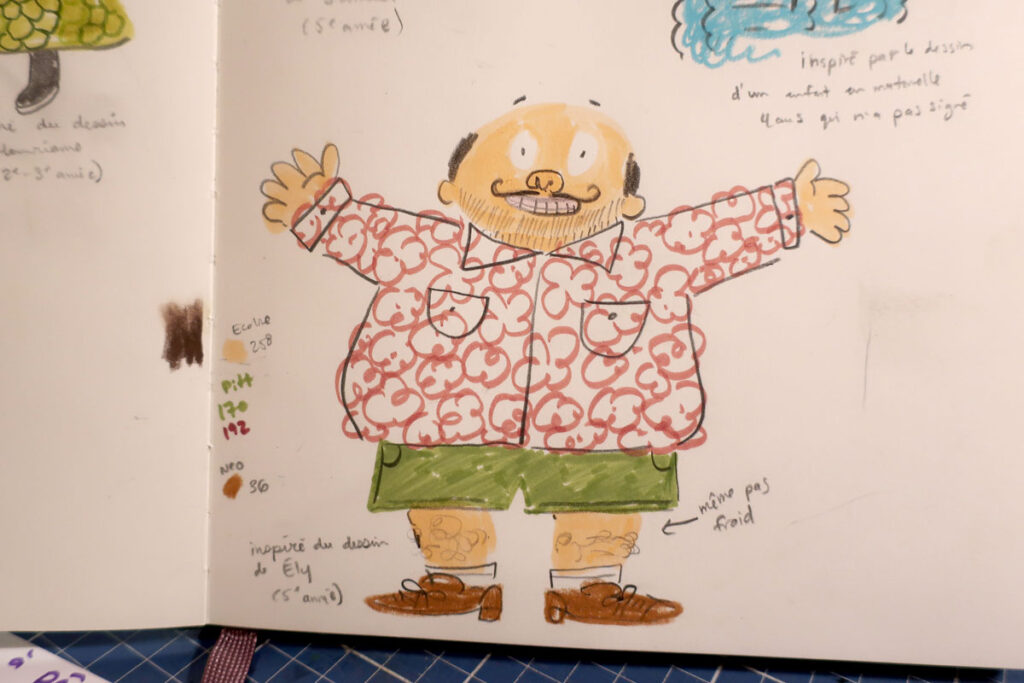 (5e année)
inspiré par le dessin
d'un enfant en maternelle
4 ans qui n'a pas signé
du dessin
(2e-3e année)
Ecoline
258
Pitt
170
192
Neo
36
même pas
froid
inspiré du dessin
de Ély
(5e année)